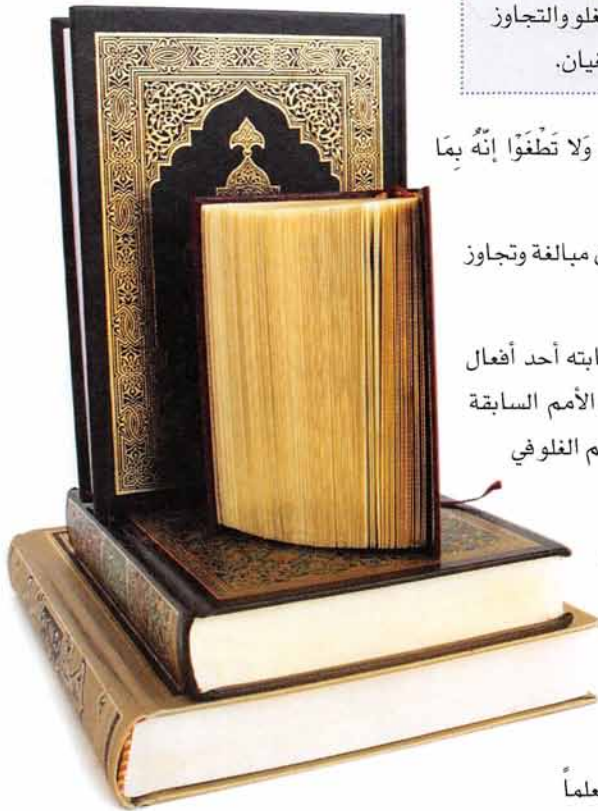 غلو والتجاوز
وَلا تَطْغَوْا إنَّهُ بِمَا
مبالغة وتجاوز
أحد أفعال
الأمم السابقة
الغلو في